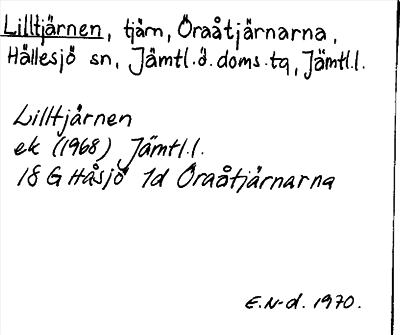 Lilltjärnen, tjärn, Öraåtjärnarna,
Hällesjö sn, Jämtl.ö.doms.tg, Jämtl.l.
Lilltjärnen
ek (1968) Jämtl.l.
18 G Håsjö 1d Öraåtjärnarna
E.N-d. 1970.